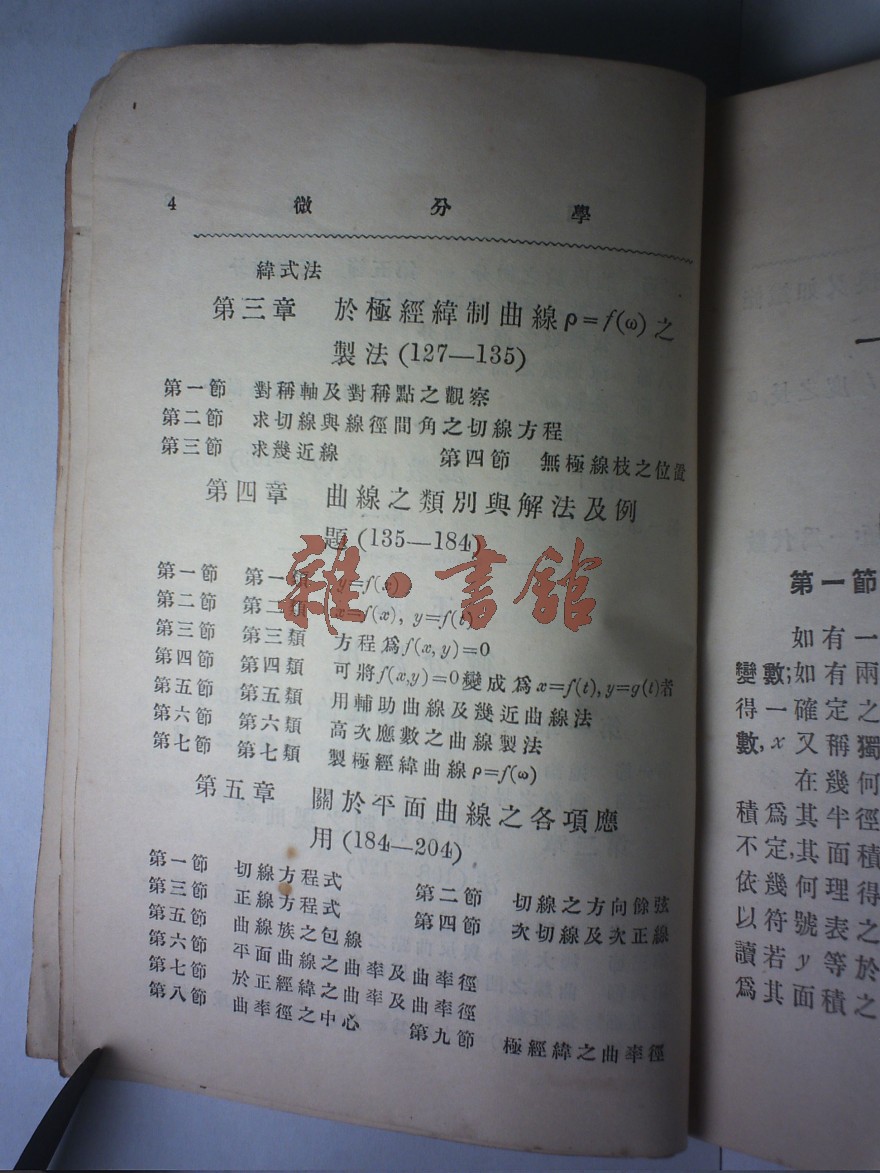 4 微分學
緯式法
第三章 於極經緯制曲線ρ=f(ω)之
製法(127—135)
第一節 對稱軸及對稱點之觀察
第二節 求切線與線徑間角之切線方程
第三節 求幾近線 第四節 無極線枝之位置
第四章 曲線之類別與解法及例
題(135—184)
第一節 第一類 y=f(x)
第二節 第二類 x=f(x), y=f(t)
第三節 第三類 方程爲f(x,y)=0
第四節 第四類 可將f(x,y)=0變成爲x=f(t),y=g(t)者
第五節 第五類 用輔助曲線及幾近曲線法
第六節 第六類 高次應數之曲線製法
第七節 第七類 製極經緯曲線ρ=f(ω)
第五章 關於平面曲線之各項應
用(184—204)
第一節 切線方程式 第二節 切線之方向餘弦
第三節 正線方程式 第四節 次切線及次正線
第五節 曲線族之包線
第六節 平面曲線之曲率及曲率徑
第七節 於正經緯之曲率及曲率徑
第八節 曲率徑之中心 第九節 極經緯之曲率徑
雜·書館
第一節
如有一
變數;如有兩
得一確定之
數,x又稱獨
在幾何
積爲其半徑
不定,其面積
依幾何理得
以符號表之
讀若y等於
爲其面積之